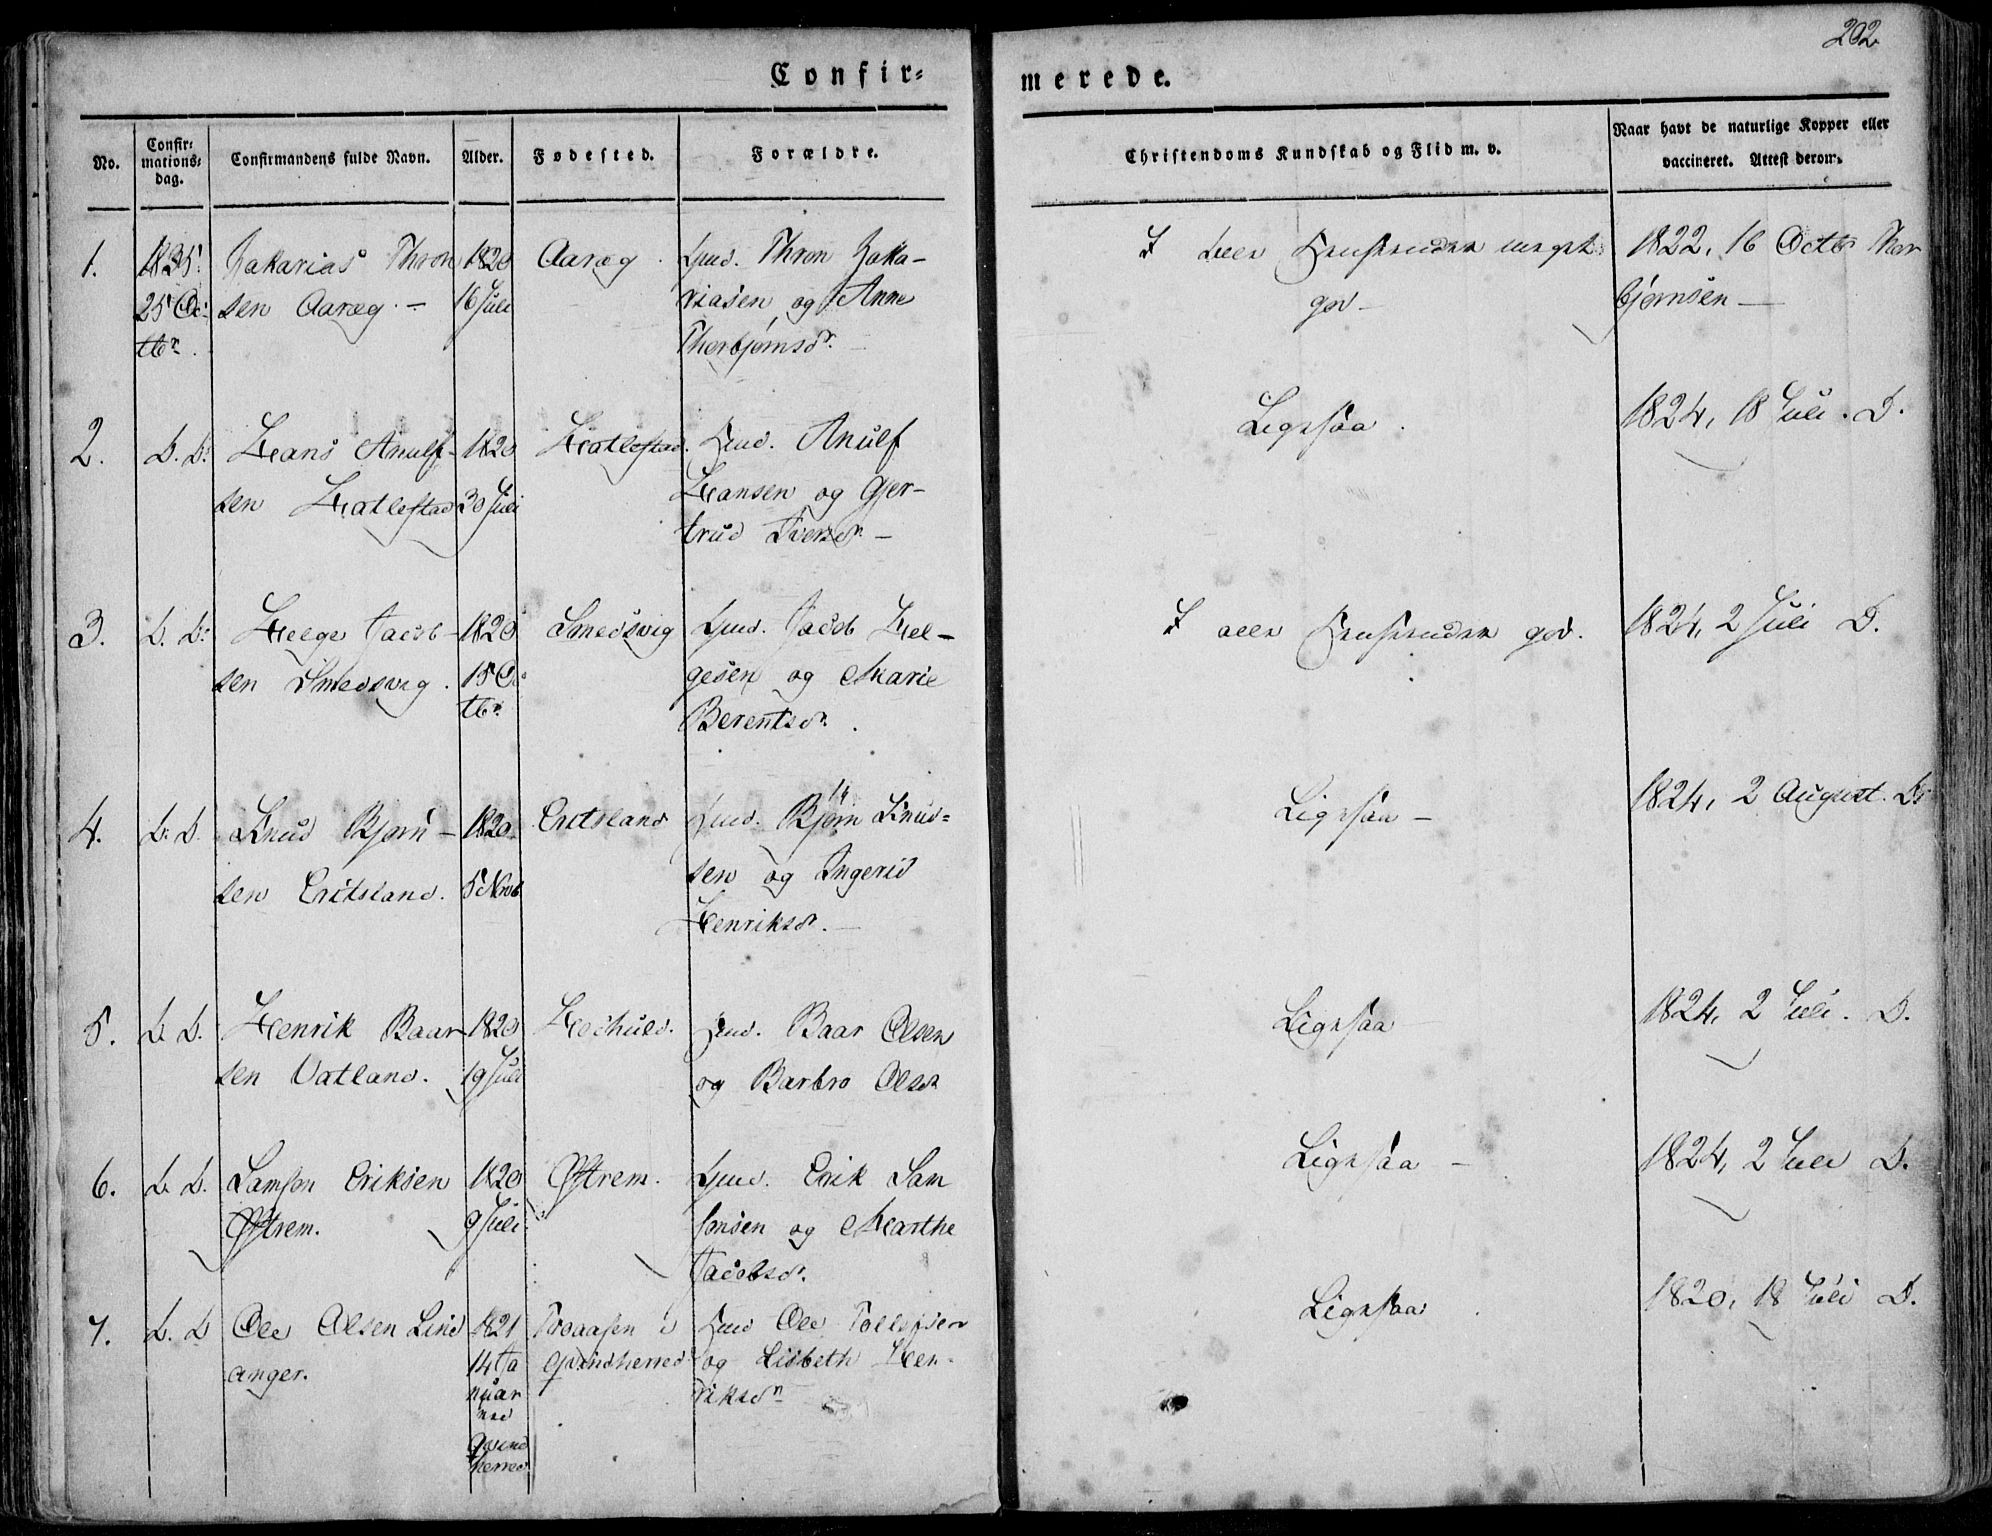 202
Confir=
merede.
No.
Confir=
mations=
dag.
Confirmandens fulde Navn.
Alder.
Fødested.
Forældre.
Christendoms Kundskab og Flid m. v.
Naar havt de naturlige Kopper eller
vaccineret. Attest derom.
1.
1835.
25 Oc-
tbr.
Zakarias Thron
sen Aaræg. -
1820
16 Juli
Aaræg.
Thron Zaka-
riasen og Anne
Thorbjørnsd.
I meget
god -
1822, 16 Octb. Thor
bjørnsen -
2.
D. D.
Hans Anulf-
sen Hatlestad
1820
30 Juli
Hatlestad.
Anulf
Hansen og Gjer-
trud Iversd. -
Ligesaa.
1824, 18 Juli. D.
3.
D. D.
Helge Jacob-
sen Smedsvig.
1820
15 Oc
tbr.
Smedsvig
Jacob Hel-
gesen og Marie
Berentsd.
I god.
1824, 2 Juli D.
4.
D. D.
Knud Bjørn-
sen Eritsland.
1820.
5 Novb
Eritsland
Bjørn Knud=
sen og Ingerid
Henriksd. -
Ligesaa -
1824, 2 August. D.
5.
D. D.
Henrik Baar
sen Vatland.
1820
19 Juli
Baar Olsen
og Barbro Olsd.
Ligesaa
1824, 2 Juli. D.
6.
D. D.
Samson Eriksen
Østrem.
1820
9 Juli.
Østrem.
Erik Sam
sonsen og Marthe
Jacobsd.
Ligesaa -
1824, 2 Juli D.
7.
D. D
Ole Olsen Lind
anger.
1821
14 Ja
nuar
Qvind
herred
i
Qvindherred
Ole Tollefsen
og Lisbeth Hen-
riksd.
Ligesaa
1820, 18 Juli D.